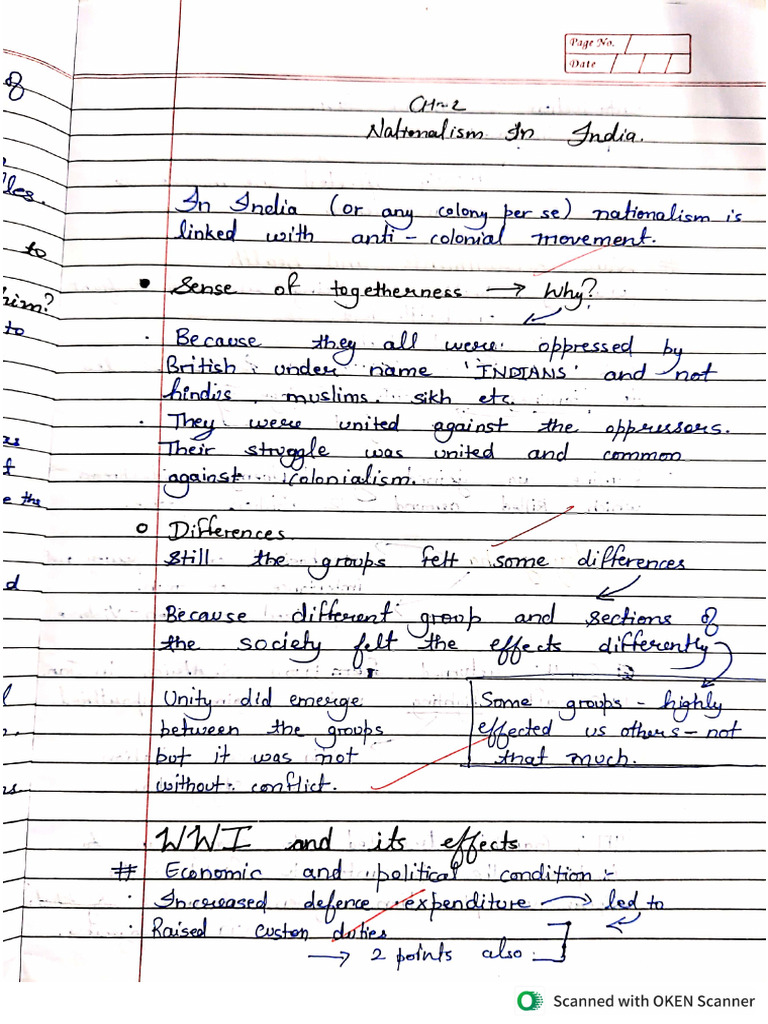 Page No.
Date
of
les.
to
him?
to
f
e the
d
CH-2
Nationalism In India.
In India (or any colony per se) nationalism is
linked with anti-colonial movement.
• Sense of togetherness → Why?
· Because they all were oppressed by
British under name 'INDIANS' and not
hindus, muslims. sikh etc.
· They were united against the oppressors.
Their struggle was united and common
against colonialism.
o Differences
Still the groups felt some differences
Because different group and sections of
the society felt the effects differently
Unity did emerge
between the groups
but it was not
without conflict.
Some groups - highly
effected vs others - not
that much.
WWI and its effects
# Economic and political condition :-
· Increased defence expenditure → led to
· Raised custon duties
→ 2 points also
Scanned with OKEN Scanner